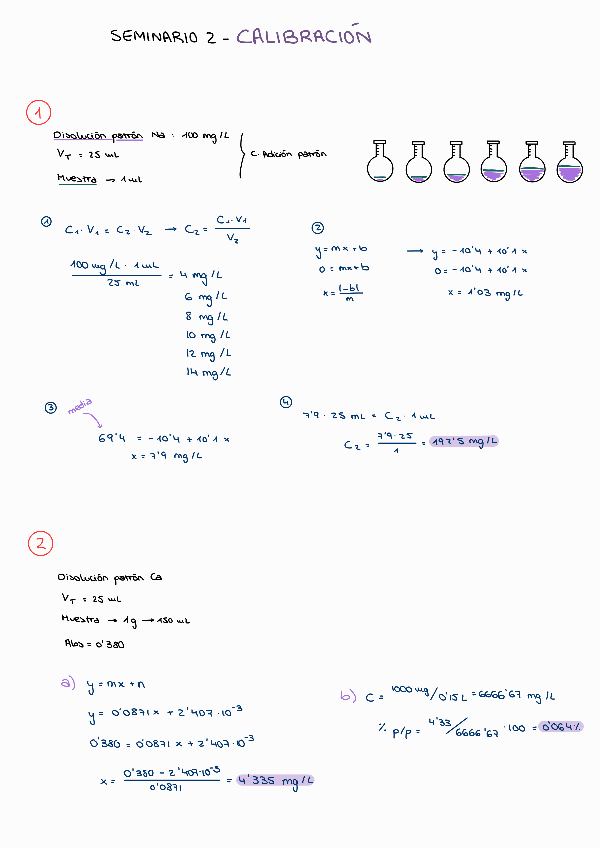 SEMINARIO 2 - CALIBRACIÓN
1
Disolución patrón Na : 100 mg/L
VT = 25 mL
C. Adición patrón
Muestra → 1 mL
① C1 · V1 = C2 · V2 → C2 = C1 · V1 / V2
100 mg/L · 1 mL / 25 mL = 4 mg/L
6 mg/L
8 mg/L
10 mg/L
12 mg/L
14 mg/L
②
y = mx + b → y = -10'4 + 10'1 x
0 = mx + b 0 = -10'4 + 10'1 x
x = |-b| / m x = 1'03 mg/L
③ media
69'4 = -10'4 + 10'1 x
x = 7'9 mg/L
④
7'9 · 25 mL = C2 · 1 mL
C2 = 7'9 · 25 / 1 = 197'5 mg/L
2
Disolución patrón Ca
VT = 25 mL
Muestra → 1g → 150 mL
Abs = 0'380
a) y = mx + n
y = 0'0871 x + 2'407 · 10⁻³
0'380 = 0'0871 x + 2'407 · 10⁻³
x = 0'380 - 2'407 · 10⁻³ / 0'0871 = 4'335 mg/L
b) C = 1000 mg / 0'15 L = 6666'67 mg/L
% p/p = 4'33 / 6666'67 · 100 = 0'064%